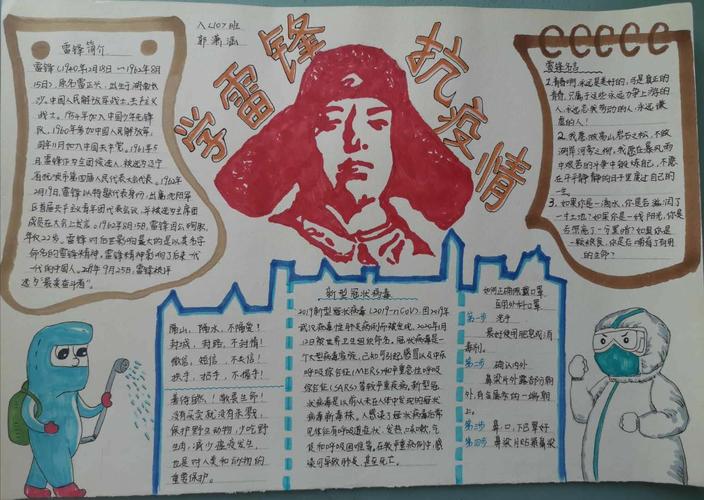 学雷锋 抗疫情
八(10)班
郭潇涵
雷锋简介
雷锋(1940年12月18日—1962年8月
15日),原名雷正兴,出生于湖南长
沙。中国人民解放军战士、共产主义
战士。1954年加入中国少年先锋
队,1960年参加中国人民解放军,
同年11月加入中国共产党。1961年5
月雷锋作为
省抚顺市第四届人民代表大会代表。1962年
2月19日,雷锋以特邀代表身份,出席沈阳军
区首届共产主义青年团代表会议,并被选为主席团
成员在大会上发言。1962年8月15日,雷锋因公殉职,
年仅22岁。雷锋对后世影响最大的是以其名字
命名的雷锋精神,雷锋精神影响了后来一代
一代的中国人。2019年9月25日,雷锋被评
选为“最美奋斗者”。
雷锋名言
1.青春啊,永远是美好的,可是真正的
青春,只属于这些永远力争上游的
人,永远忘我劳动的人,永远谦
虚的人!
2.我愿做高山岩石之松,不做
湖岸河旁之柳。我愿在暴风雨
中艰苦的斗争中锻炼自己,不愿
在平平静静的日子里度过自己的
一生。
3.如果你是一滴水,你是否滋润了
一寸土地?如果你是一线阳光,你是
否照亮了一分黑暗?如果你是
一颗粮食,你是否哺育了有用
的生命?
隔山,隔水,不隔爱!
封城,封路,不封情!
微信,短信,不失信!
扶手,把手,不握手!
善待自然!敬畏生命!
没有买卖就没有杀戮,
保护野生动物,少吃野
生肉,减少瘟疫发生,
也是对人类和动物的
重要保护。
新型冠状病毒
2019新型冠状病毒(2019-nCoV),因2019年
武汉病毒性肺炎病例而被发现,2020年1月
12日被世界卫生组织命名。冠状病毒是一
个大型病毒家族,已知可引起感冒以及中东
呼吸综合征(MERS)和严重急性呼吸
综合征(SARS)等较严重疾病。新型冠
状病毒是以前从未在人体中发现的冠状
病毒新毒株。人感染了冠状病毒后常
见体征有呼吸道症状、发热、咳嗽、气
促和呼吸困难等。在较严重病例中,感
染可导致肺炎,甚至死亡。
如何正确佩戴口罩
医用外科口罩
第一步 洗手
最好使用肥皂或消
毒剂。
第二步 确认内外
鼻梁片外露部分朝
外,有金属条的一端朝
上。
第三步 鼻,口,下巴罩好
第四步